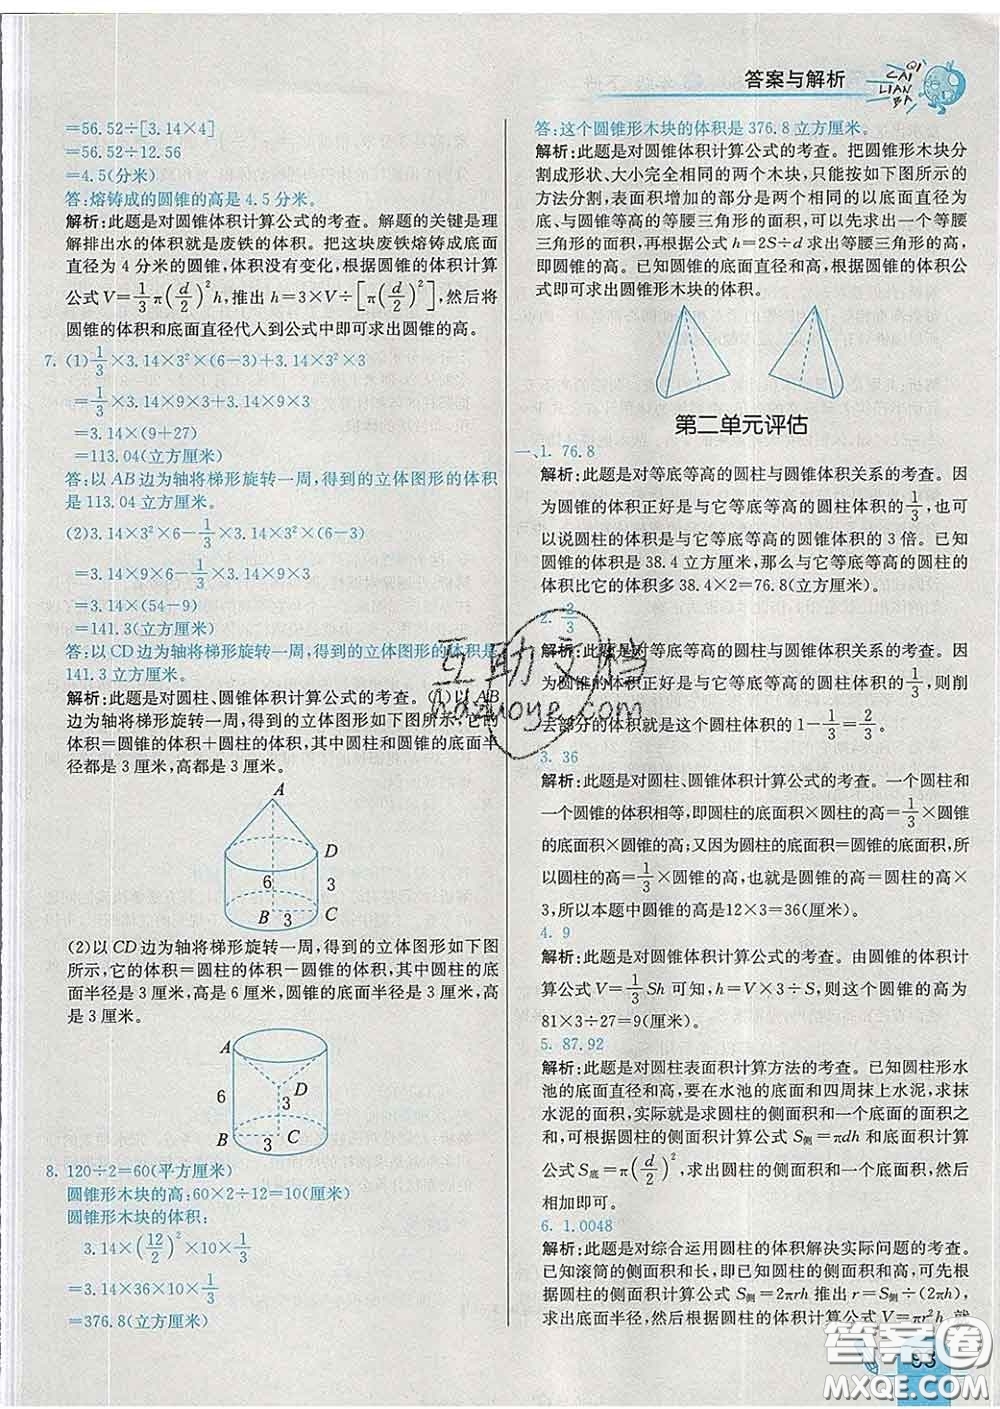 答案与解析
QI
CAI
LIAN
BA
=56.52÷[3.14×4]
=56.52÷12.56
=4.5(分米)
答:熔铸成的圆锥的高是4.5分米。
解析:此题是对圆锥体积计算公式的考查。解题的关键是理
解排出水的体积就是废铁的体积。把这块废铁熔铸成底面
直径为4分米的圆锥,体积没有变化,根据圆锥的体积计算
公式V=1/3π(d/2)²h,推出h=3×V÷[π(d/2)²],然后将
圆锥的体积和底面直径代人到公式中即可求出圆锥的高。
7. (1)1/3×3.14×3²×(6-3)+3.14×3²×3
=1/3×3.14×9×3+3.14×9×3
=3.14×(9+27)
=113.04(立方厘米)
答:以AB边为轴将梯形旋转一周,得到的立体图形的体积
是113.04立方厘米。
(2)3.14×3²×6-1/3×3.14×3²×(6-3)
=3.14×9×6-1/3×3.14×9×3
=3.14×(54-9)
=141.3(立方厘米)
答:以CD边为轴将梯形旋转一周,得到的立体图形的体积是
141.3立方厘米。
解析:此题是对圆柱、圆锥体积计算公式的考查。(1)以AB
边为轴将梯形旋转一周,得到的立体图形如下图所示,它的
体积=圆锥的体积+圆柱的体积,其中圆柱和圆锥的底面半
径都是3厘米,高都是3厘米。
A
D
6
3
B
3
C
(2)以CD边为轴将梯形旋转一周,得到的立体图形如下图
所示,它的体积=圆柱的体积-圆锥的体积,其中圆柱的底
面半径是3厘米,高是6厘米,圆锥的底面半径是3厘米,高
是3厘米。
A
D
6
3
B
3
C
8. 120÷2=60(平方厘米)
圆锥形木块的高:60×2÷12=10(厘米)
圆锥形木块的体积:
3.14×(12/2)²×10×1/3
=3.14×36×10×1/3
=376.8(立方厘米)
答:这个圆锥形木块的体积是376.8立方厘米。
解析:此题是对圆锥体积计算公式的考查。把圆锥形木块分
割成形状、大小完全相同的两个木块,只能按如下图所示的
方法分割,表面积增加的部分是两个相同的以底面直径为
底、与圆锥等高的等腰三角形的面积,可以先求出一个等腰
三角形的面积,再根据公式h=2S÷d求出等腰三角形的高,
即圆锥的高。已知圆锥的底面直径和高,根据圆锥的体积公
式即可求出圆锥形木块的体积。
第二单元评估
一、1. 76.8
解析:此题是对等底等高的圆柱与圆锥体积关系的考查。因
为圆锥的体积正好是与它等底等高的圆柱体积的1/3,也可
以说圆柱的体积是与它等底等高的圆锥体积的3倍。已知
圆锥的体积是38.4立方厘米,那么与它等底等高的圆柱的
体积比它的体积多38.4×2=76.8(立方厘米)。
2. 2/3
解析:此题是对等底等高的圆柱与圆锥体积关系的考查。因
为圆锥的体积正好是与它等底等高的圆柱体积的1/3,则削
去部分的体积就是这个圆柱体积的1-1/3=2/3。
3. 36
解析:此题是对圆柱、圆锥体积计算公式的考查。一个圆柱和
一个圆锥的体积相等,即圆柱的底面积×圆柱的高=1/3×圆锥
的底面积×圆锥的高;又因为圆柱的底面积=圆锥的底面积,所
以圆柱的高=1/3×圆锥的高,也就是圆锥的高=圆柱的高×
3,所以本题中圆锥的高是12×3=36(厘米)。
4. 9
解析:此题是对圆锥体积计算公式的考查。由圆锥的体积计
算公式V=1/3Sh可知,h=V×3÷S,则这个圆锥的高为
81×3÷27=9(厘米)。
5. 87.92
解析:此题是对圆柱表面积计算方法的考查。已知圆柱形水
池的底面直径和高,要在水池的底面和四周抹上水泥,求抹
水泥的面积,实际就是求圆柱的侧面积和一个底面积之
和,可根据圆柱的侧面积计算公式S侧=πdh和底面积计算
公式S底=π(d/2)²,求出圆柱的侧面积和一个底面积,然后
相加即可。
6. 1.0048
解析:此题是对综合运用圆柱的体积解决实际问题的考查。
已知滚筒的侧面积和长,即已知圆柱的侧面积和高,可先根
据圆柱的侧面积计算公式S侧=2πrh推出r=S侧÷(2πh),
求出底面半径,然后根据圆柱的体积计算公式V=πr²h,就
93
互助文档
hdzuoye.com
答案圈
MXQE.COM